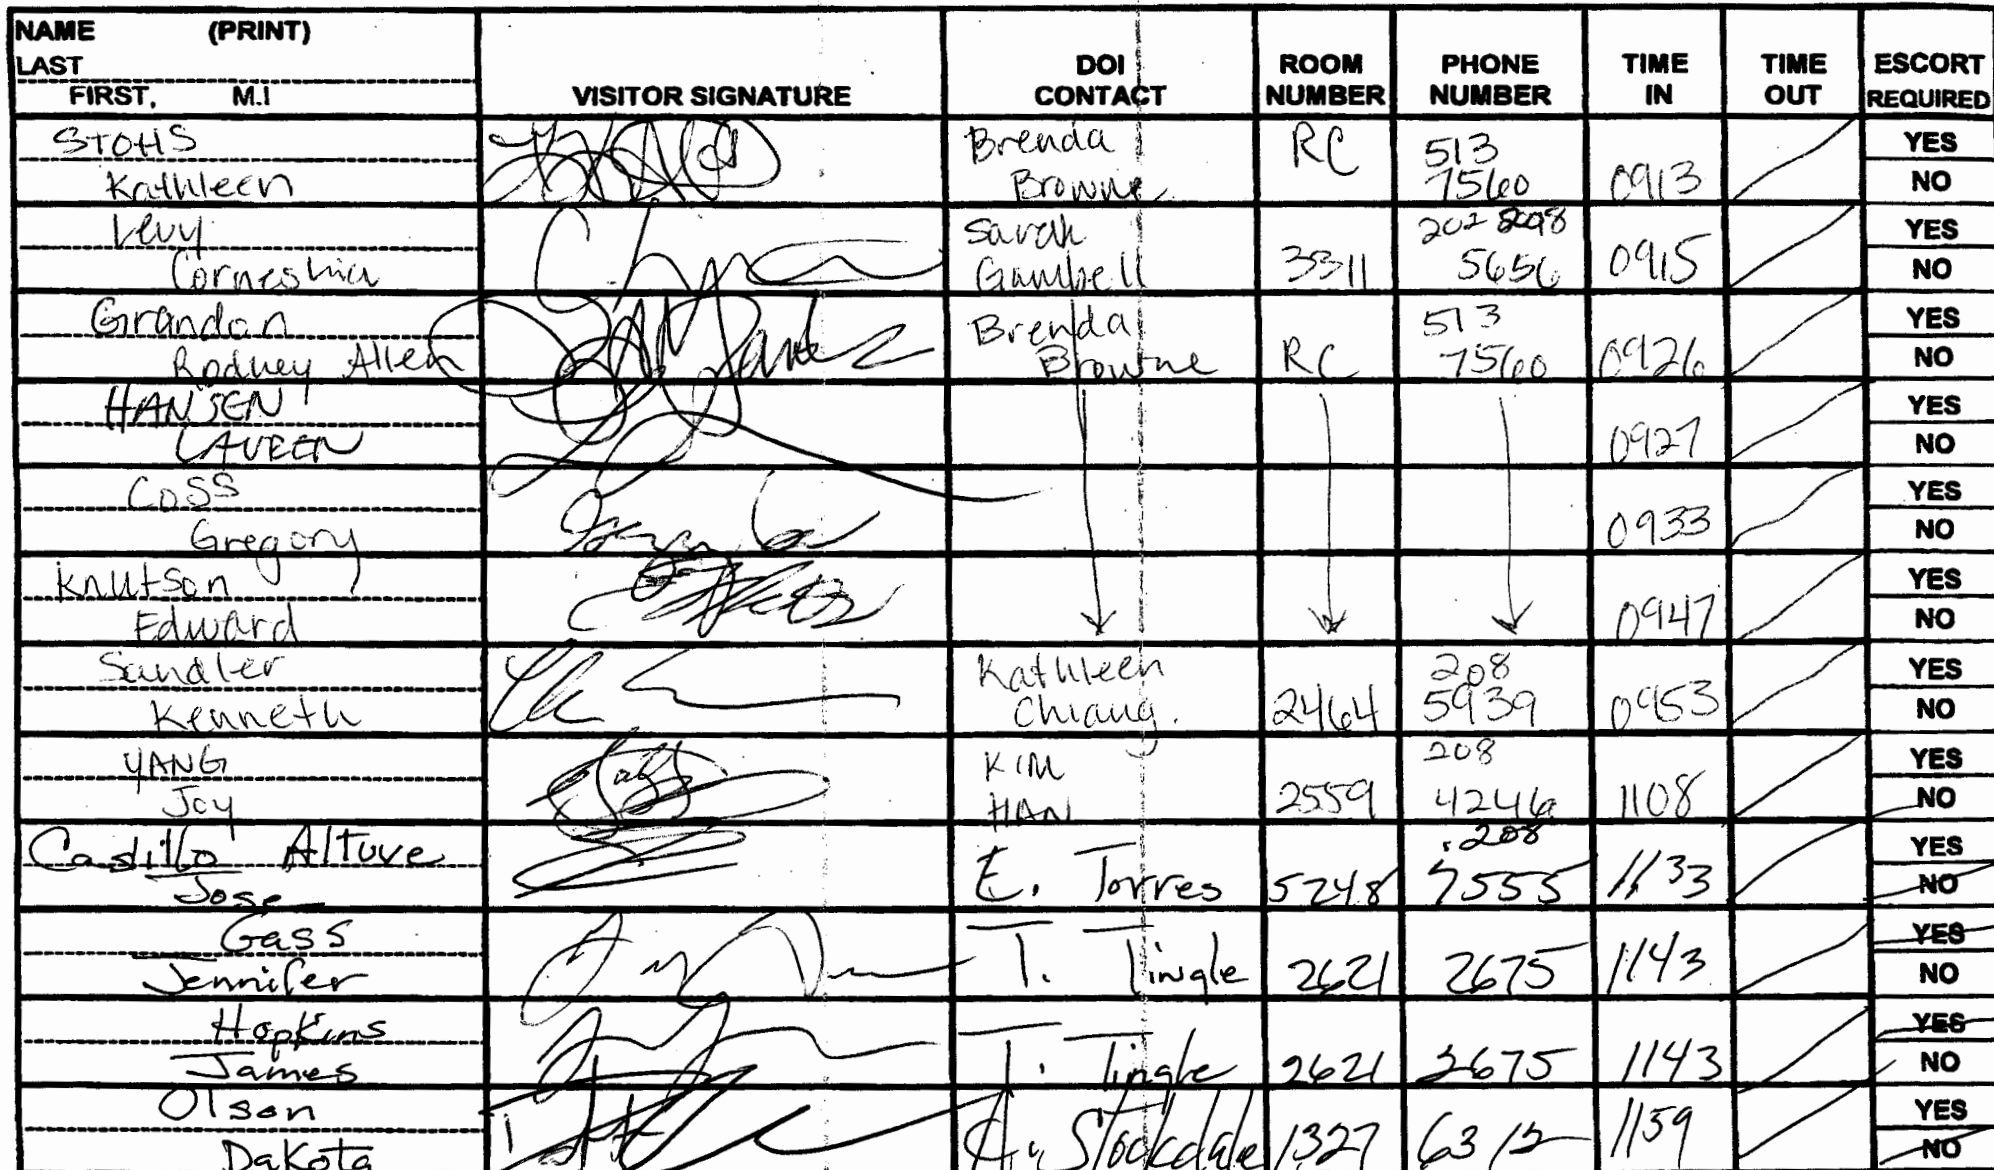 NAME (PRINT)
LAST
FIRST, M.I
VISITOR SIGNATURE
DOI
CONTACT
ROOM
NUMBER
PHONE
NUMBER
TIME
IN
TIME
OUT
ESCORT
REQUIRED
STOHS
Kathleen
Brenda
Browne
RC
513
7560
0913
YES
NO
Levy
Corneshia
Sarah
Gambell
3311
5656
0915
YES
NO
Grandon
Rodney Allen
Brenda
Browne
RC
513
7560
0926
YES
NO
HANSEN
LAUREN
0927
YES
NO
Coss
Gregory
0933
YES
NO
Knutson
Edward
0947
YES
NO
Sandler
Kenneth
Kathleen
Chiang.
2464
208
5939
0953
YES
NO
YANG
Joy
KIM
HAN
2559
208
4246
1108
YES
NO
Castillo Altuve
Jose
E. Torres
5248
208
7555
1133
YES
NO
Gass
Jennifer
T. Tingle
2621
2675
1143
YES
NO
Hopkins
James
T. Tingle
2621
2675
1143
YES
NO
Olson
Dakota
Stockdale
1327
6312
1159
YES
NO